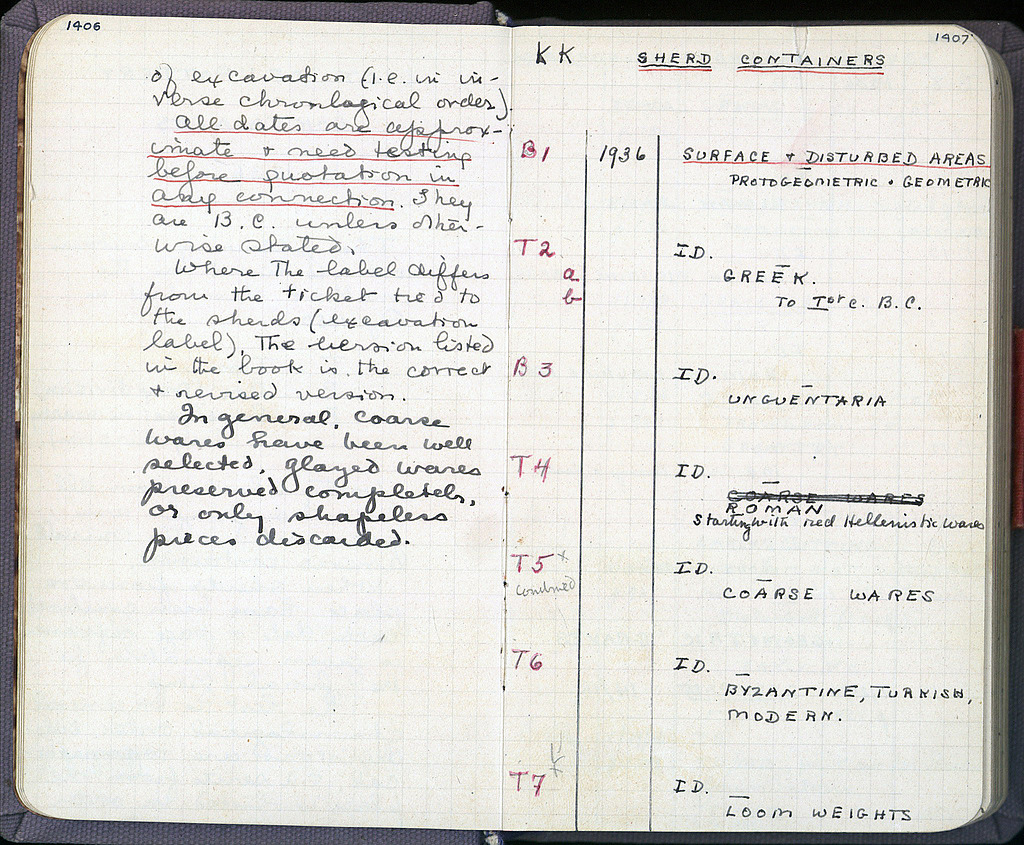 1406
of excavation (i.e. in in-
verse chronlogical order)
All dates are approx-
imate + need testing
before quotation in
any connection. They
are B.C. unless other-
wise stated.
Where the label differs
from the ticket tied to
the sherds (excavation
label), the version listed
in the book is the correct
+ revised version.
In general, coarse
wares have been well
selected, glazed wares
preserved completely,
or only shapeless
pieces discarded.
1407
KK SHERD CONTAINERS
B1 1936 SURFACE + DISTURBED AREAS
PROTOGEOMETRIC + GEOMETRIC
T2 ID.
a GREEK.
b TO Ist c. B.C.
B3 ID.
UNGUENTARIA
T4 ID.
COARSE WARES
ROMAN
Starting with red Hellenistic wares
T5 x ID.
combined COARSE WARES
T6 ID.
BYZANTINE, TURKISH,
MODERN.
T7 ID.
LOOM WEIGHTS